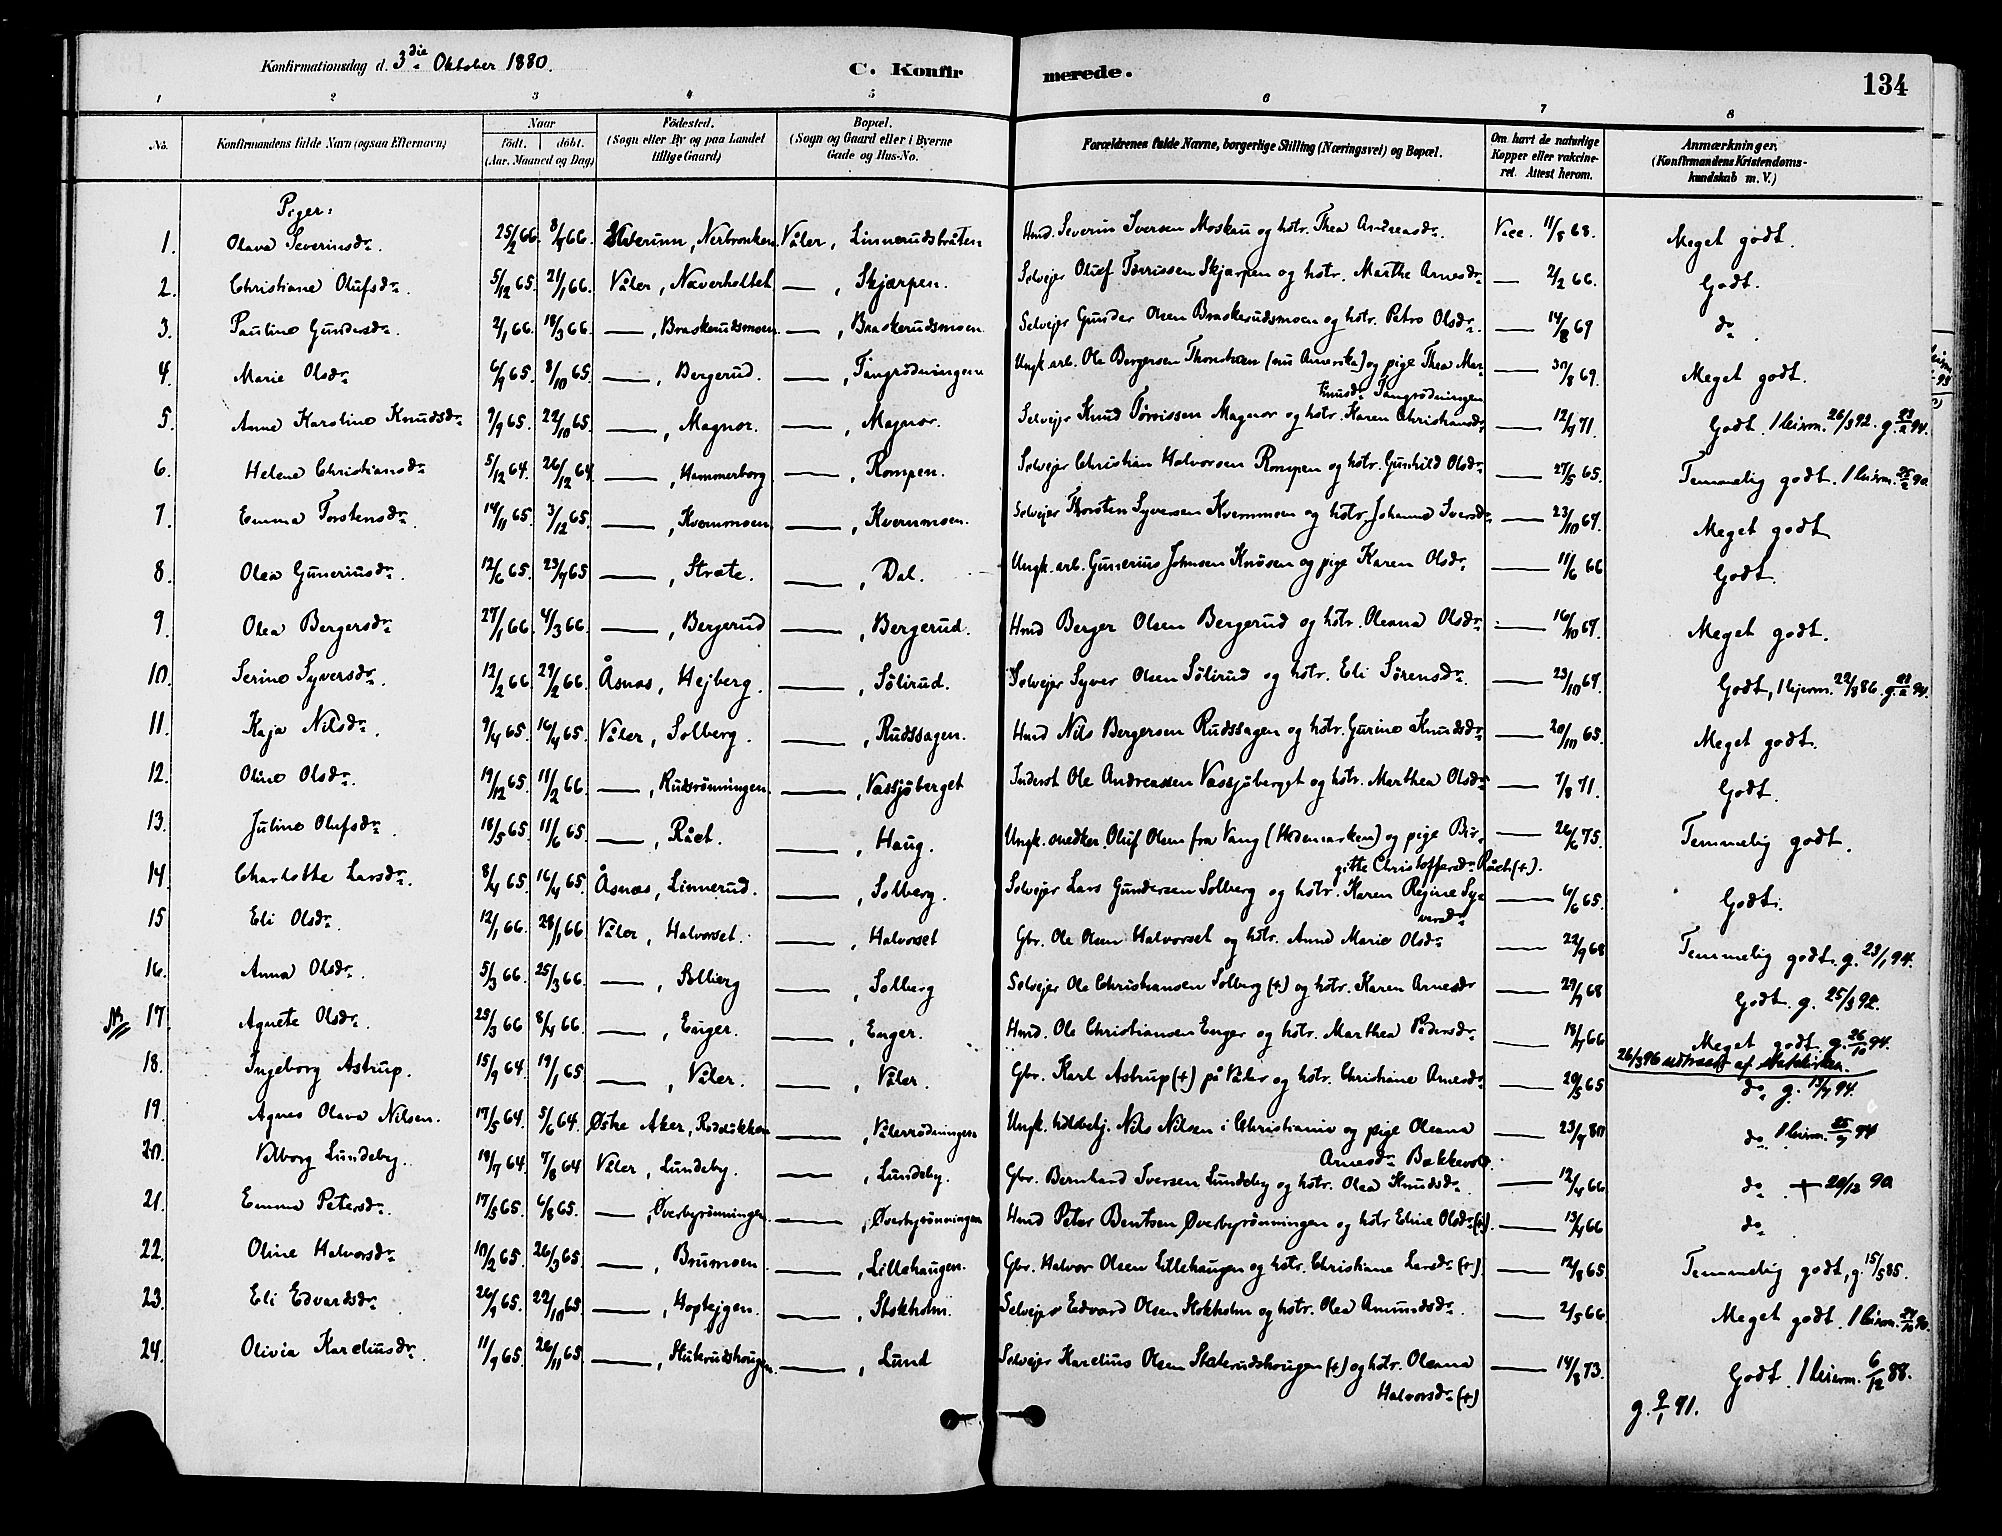 Konfirmationsdag d. 3die Oktober 1880.
C. Konfirmerede.
134
1 2 3 4 5 6 7 8
No. Konfirmandens fulde Navn (ogsaa Efternavn) Naar født. døbt. (Aar, Maaned og Dag) Fødested. (Sogn eller By og paa Landet tillige Gaard) Bopæl. (Sogn og Gaard eller i Byerne Gade og Hus-No. Forældrenes fulde Navne, borgerlige Stilling (Næringsvei) og Bopæl. Om havt de naturlige Kopper eller vakcineret. Attest herom. Anmærkninger. (Konfirmandens Kristendomskundskab m. V.)
Piger:
1. Olava Severinsdr. 25/2 66. 8/4 66. Elverum, Nerbronken. Våler, Linnerudsbråten Hmd. Severin Iversen Moskau og hstr. Thea Andreasdr. Vacc. 11/8 68. Meget godt.
2. Christiane Olufsdr. 5/12 65. 21/1 66. Våler, Næverholtet — , Skjærpen. Selvejer Oluf Tørrissen Skjærpen og hstr. Marthe Arnesdr — 2/2 66. Godt.
3. Pauline Gundersdr. 2/1 66. 18/3 66. — , Braskerudsmoen — , Braskerudsmoen. Selvejer Gunder Olsen Braskerudsmoen og hstr. Petro Olsdr. — 14/8 69 do.
4. Marie Olsdr 6/9 65. 8/10 65. — , Bergerud. — , Tangrødningen Ungk. arb. Ole Bergersen (nu Amerika) og pige Thea Mar- — 30/8 69. Meget godt.
Knudsdr Tangrødningen
5. Anne Karoline Knudsdr 9/9 65. 22/10 65. — , Magnor. — , Magnor. Selvejer Knud Tørrissen Magnor og hstr. Karen Christiansdr — 12/9 71. Godt. 1 leierm. 26/3 92. g. 23/2 94.
6. Helene Christiansdr 5/12 64. 26/12 64 — , Hammerborg — , Rompen. Selvejer Christian Halvorsen Rompen og hstr. Gunhild Olsdr — 27/5 65. Temmelig godt. 1 leierm. 25/2 90.
7. Emma Torstensdr. 14/11 65. 3/12 65. — , Kvernmoen — , Kvernmoen. Selvejer Thorsten Syversen Kvernmoen og hstr. Johanne Iversdr — 23/10 67. Meget godt
8. Olea Guneriusdr. 12/6 65. 23/7 65 — , Strate. — , Dal. Ungk. arb. Gunerius Johnsen Knosen og pige Karen Olsdr. — 11/6 66 Godt.
9. Olea Bergersdr. 27/1 66. 4/3 66. — , Bergerud — , Bergerud. Hmd Berger Olsen Bergerud og hstr. Oleana Olsdr — 16/10 67. Meget godt.
10. Serine Syversdr. 12/2 66. 27/2 66. Åsnæs, Hejberg. — , Sølirud. Selvejer Syver Olsen Sølirud og hstr. Eli Sørensdr. — 23/10 67. Godt, 1 lejerm. 22/8 86.
11. Kaja Nilsdr. 9/4 65. 16/4 65. Våler, Solberg. — , Rudssagen. Hmd Nils Bergersen Rudssagen og hstr. Gurine Knudsdr — 20/10 65. Meget godt.
12. Oline Olsdr. 19/12 65. 11/2 66. — , Rudsrønningen. — , Vassjøberget Inderst Ole Andreassen Vassjøberget og hstr. Marthea Olsdr — 7/8 71. Godt.
13. Juline Olufsdr. 18/5 65. 11/6 65 — , Rået. — , Haug. Ungk. snedker Oluf Olsen fra Vang (Hedemarken) og pige Bir- — 26/6 75. Temmelig godt.
gitte Christoffersdr Råeh(+).
14. Charlotte Larsdr. 8/4 65. 16/4 65. Åsnæs, Linnerud. — , Solberg. Selvejer Lars Gundersen Solberg og hstr. Karen Regine Sy- — 6/6 65. Godt.
versdr
15 Eli Olsdr. 12/1 66. 28/1 66 Våler, Halvorset. — , Halvorset Gbr. Ole Olsen Halvorset og hstr. Anne Marie Olsdr — 22/9 68 Temmelig godt. g. 23/1 94.
16. Anna Olsdr. 5/3 66. 25/3 66. — , Solberg — , Solberg Selvejer Ole Christiansen Solberg (+) og hstr. Karen Arnesdr — 29/9 68 Godt. g. 25/3 92.
17. Agnete Olsdr. 25/3 66 8/4 66. — , Enger. — , Enger. Hmd. Ole Christiansen Enger og hstr. Marthea Pedersdr. — 18/7 66 Meget godt g. 26/10 94.
26/3 96 udtraadt af statskirken.
18. Ingeborg Astrup. 15/9 64. 19/1 65 — , Våler. — , Våler. Gbr. Karl Astrup (+) på Våler og hstr. Christiane Arnesdr — 20/5 65 do g. 13/4 94.
19. Agnes Olava Nilsen. 17/5 64. 5/6 64. Østre Aker, Rodeløkken — , Vålerrødningen Ungk. Nils Nilsen i Christiania og pige Oleana — 23/9 80 do. 1 leierm.
Arnesdr Bakkevold.
20. Valborg Lundeby. 19/7 64. 7/8 64 Våler, Lundeby. — , Lundeby. Gbr. Bernhard Iversen Lundeby og hstr. Olea Knudsdr. — 12/4 66 do. + 20/12 90
21. Emma Petersdr. 17/5 65. 6/8 65. — , Øverbyrønningen — , Øverbyrønningen Hmd Peter Bentsen Øverbyrønningen og hstr Eline Olsdr (+). — 13/4 66 do
22. Oline Halvorsdr 10/2 65. 26/3 65. — , Brumoen. — , Lillehaugen. Gbr. Halvor Olsen Lillehaugen og hstr. Christiane Larsdr (+) — 12/8 65. Temmelig godt, g. 15/5 85.
23. Eli Edvardsdr. 20/9 65. 22/10 65. — , — , Stokholm. Selvejer Edvard Olsen Stokholm og hstr. Olea Amundsdr. — 2/5 66 Meget godt. 1 leierm.
24. Olivia Kareliusdr. 11/9 65. 26/11 65. — , — , Lund Selvejer Karelius Olsen (+) og hstr. Oleana — 14/8 73. Godt. 1 leierm. 6/12 88.
Halvorsdr (+)
g. 9/1 91.